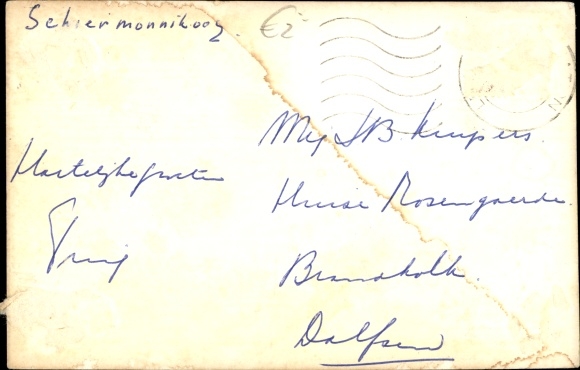 Schiermonnikoog.
€2
Hartelijke groeten
Mej J B Kuipers.
Huize Rosengaerde.
Brandkolk.
Dalfsen